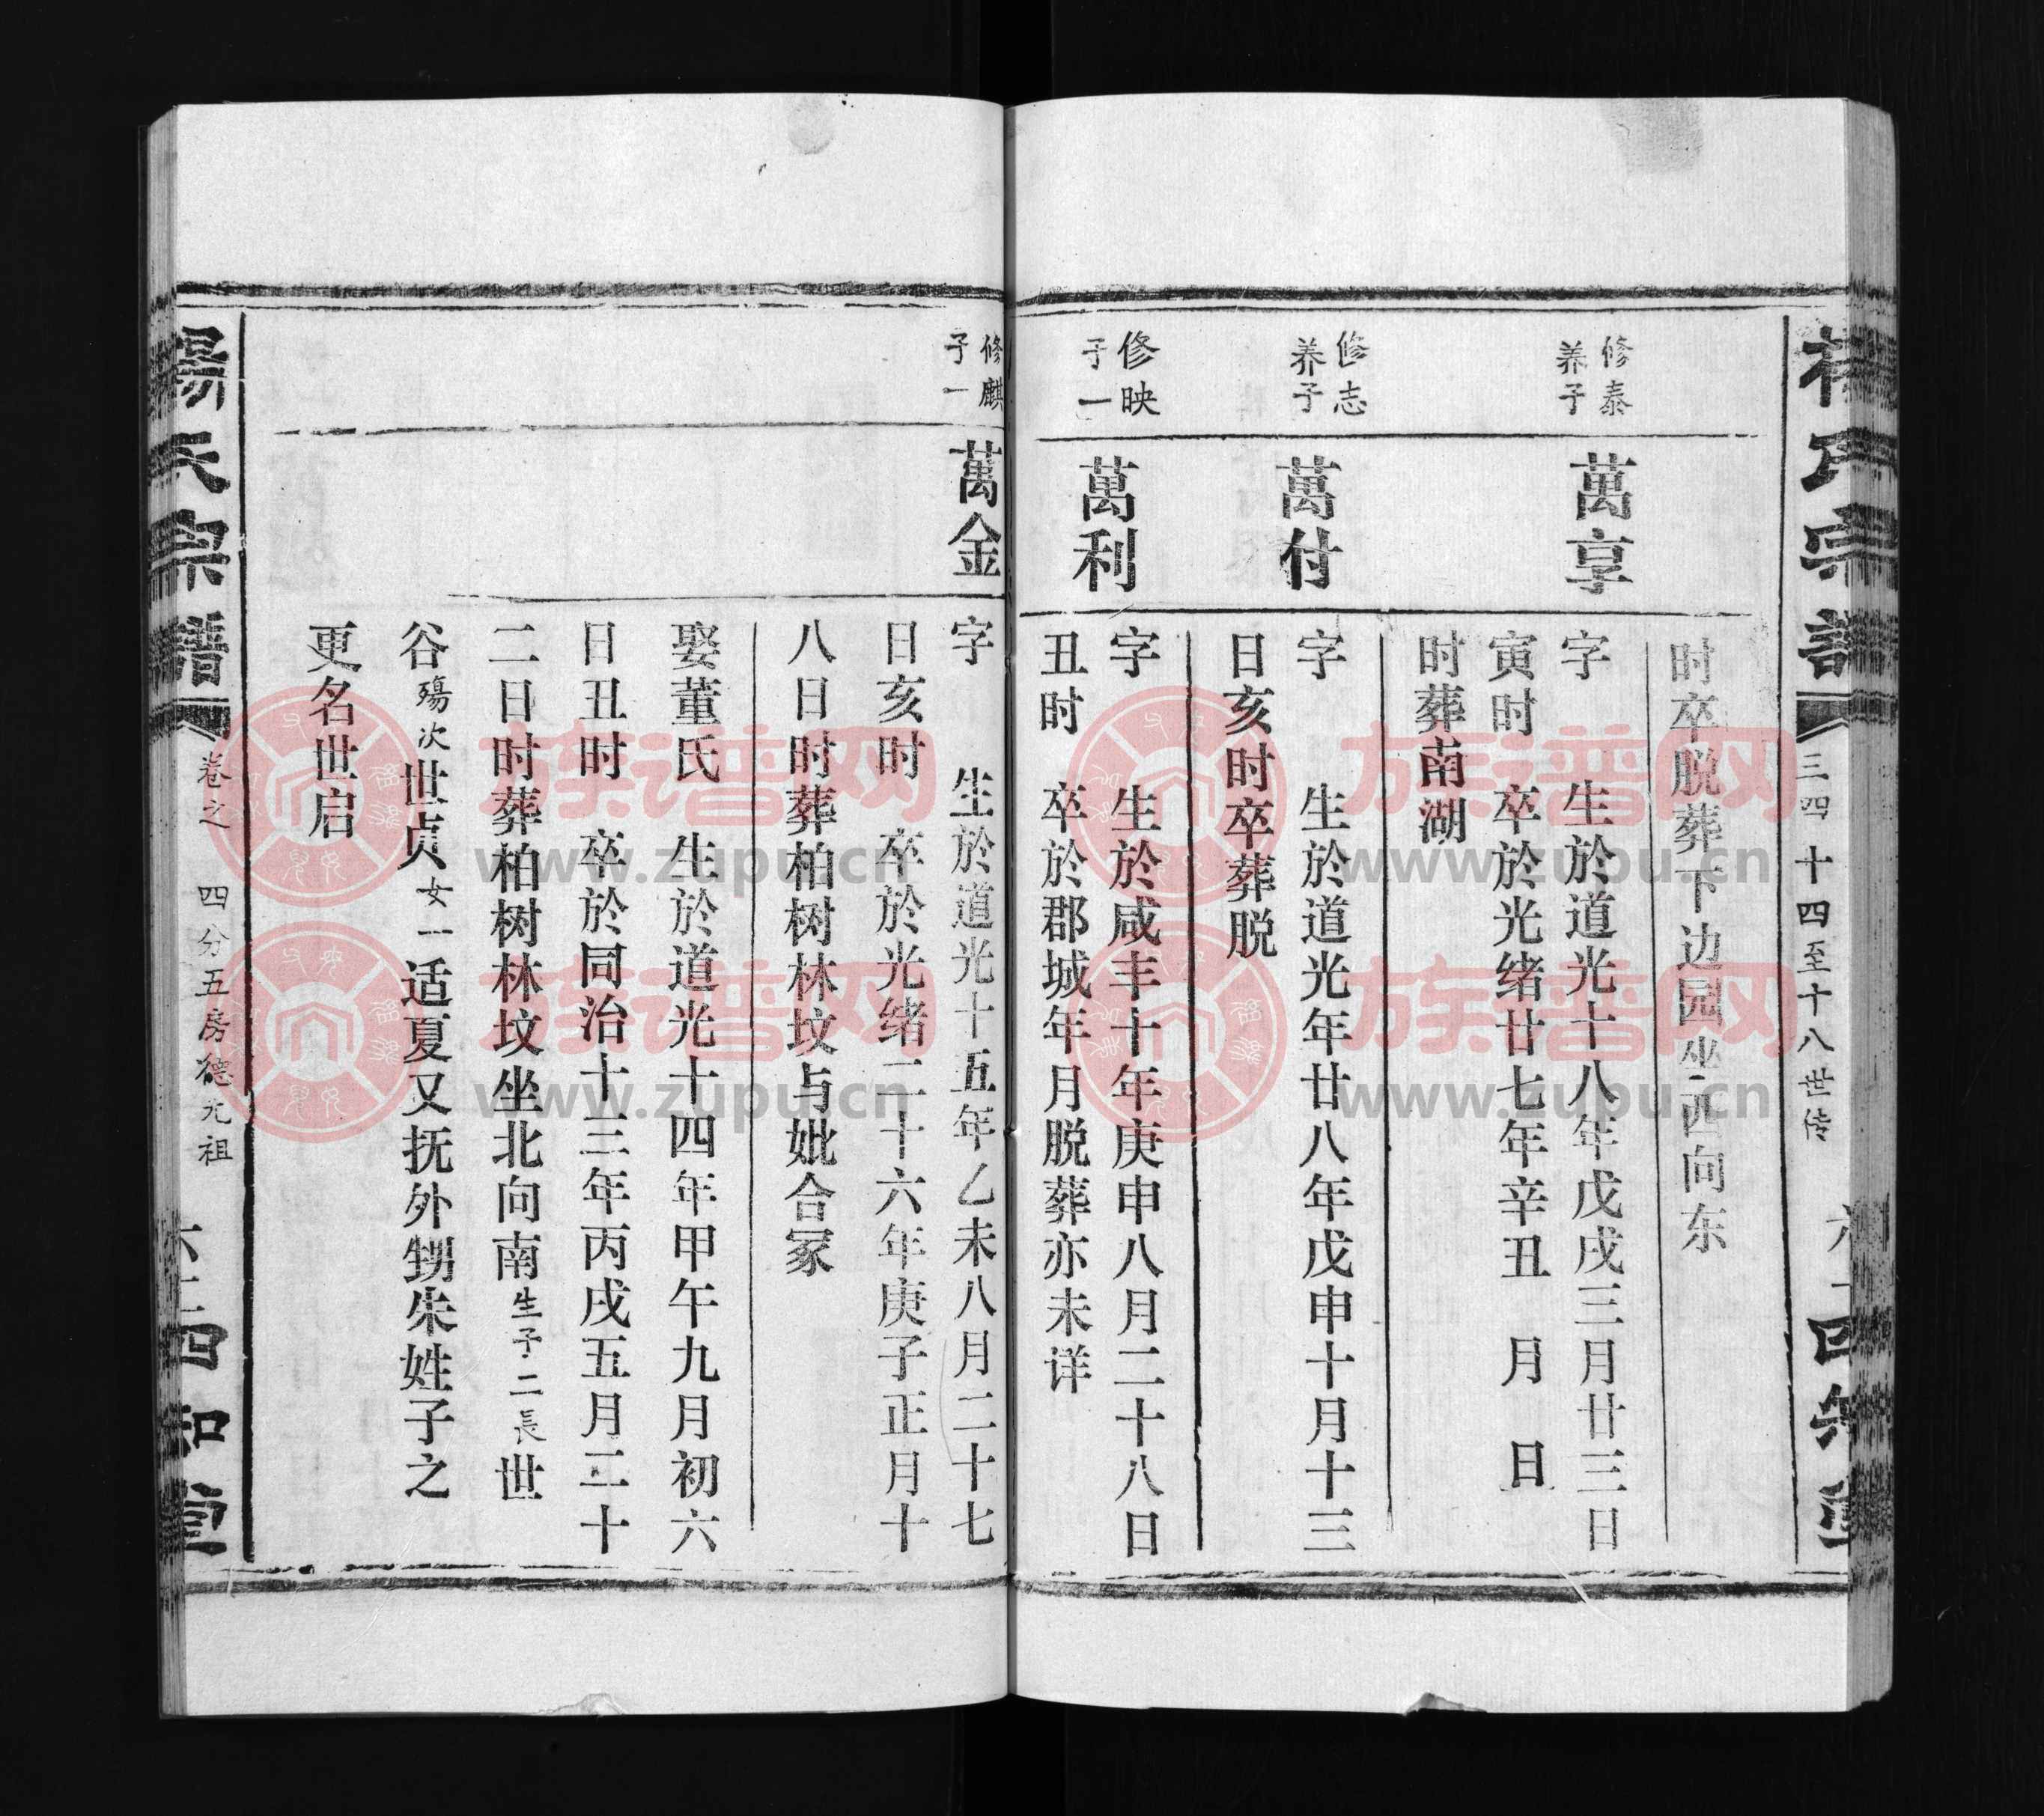 楊氏宗譜
三四 十四至十八世传
四知堂
时卒脱葬下边园坐西向东
修泰
养子
萬享
字 生於道光十八年戊戌三月廿三日
寅时 卒於光绪廿七年辛丑 月 日
时葬南湖
修志
养子
萬付
字 生於道光年廿八年戊申十月十三
日亥时卒葬脱
修映
子一
萬利
字 生於咸丰十年庚申八月二十八日
丑时 卒於郡城年月脱葬亦未详
修麒
子一
萬金
字 生於道光十五年乙未八月二十七
日亥时 卒於光绪二十六年庚子正月十
八日时葬柏树林坟与妣合冢
娶董氏 生於道光十四年甲午九月初六
日丑时 卒於同治十三年丙戌五月二十
二日时葬柏树林坟坐北向南生子二長世
谷殇次世贞女一适夏又抚外甥朱姓子之
更名世启
楊氏宗譜
卷之 四分五房德元祖
四知堂
族谱网
www.zupu.cn
族谱网
www.zupu.cn
族谱网
www.zupu.cn
族谱网
www.zupu.cn